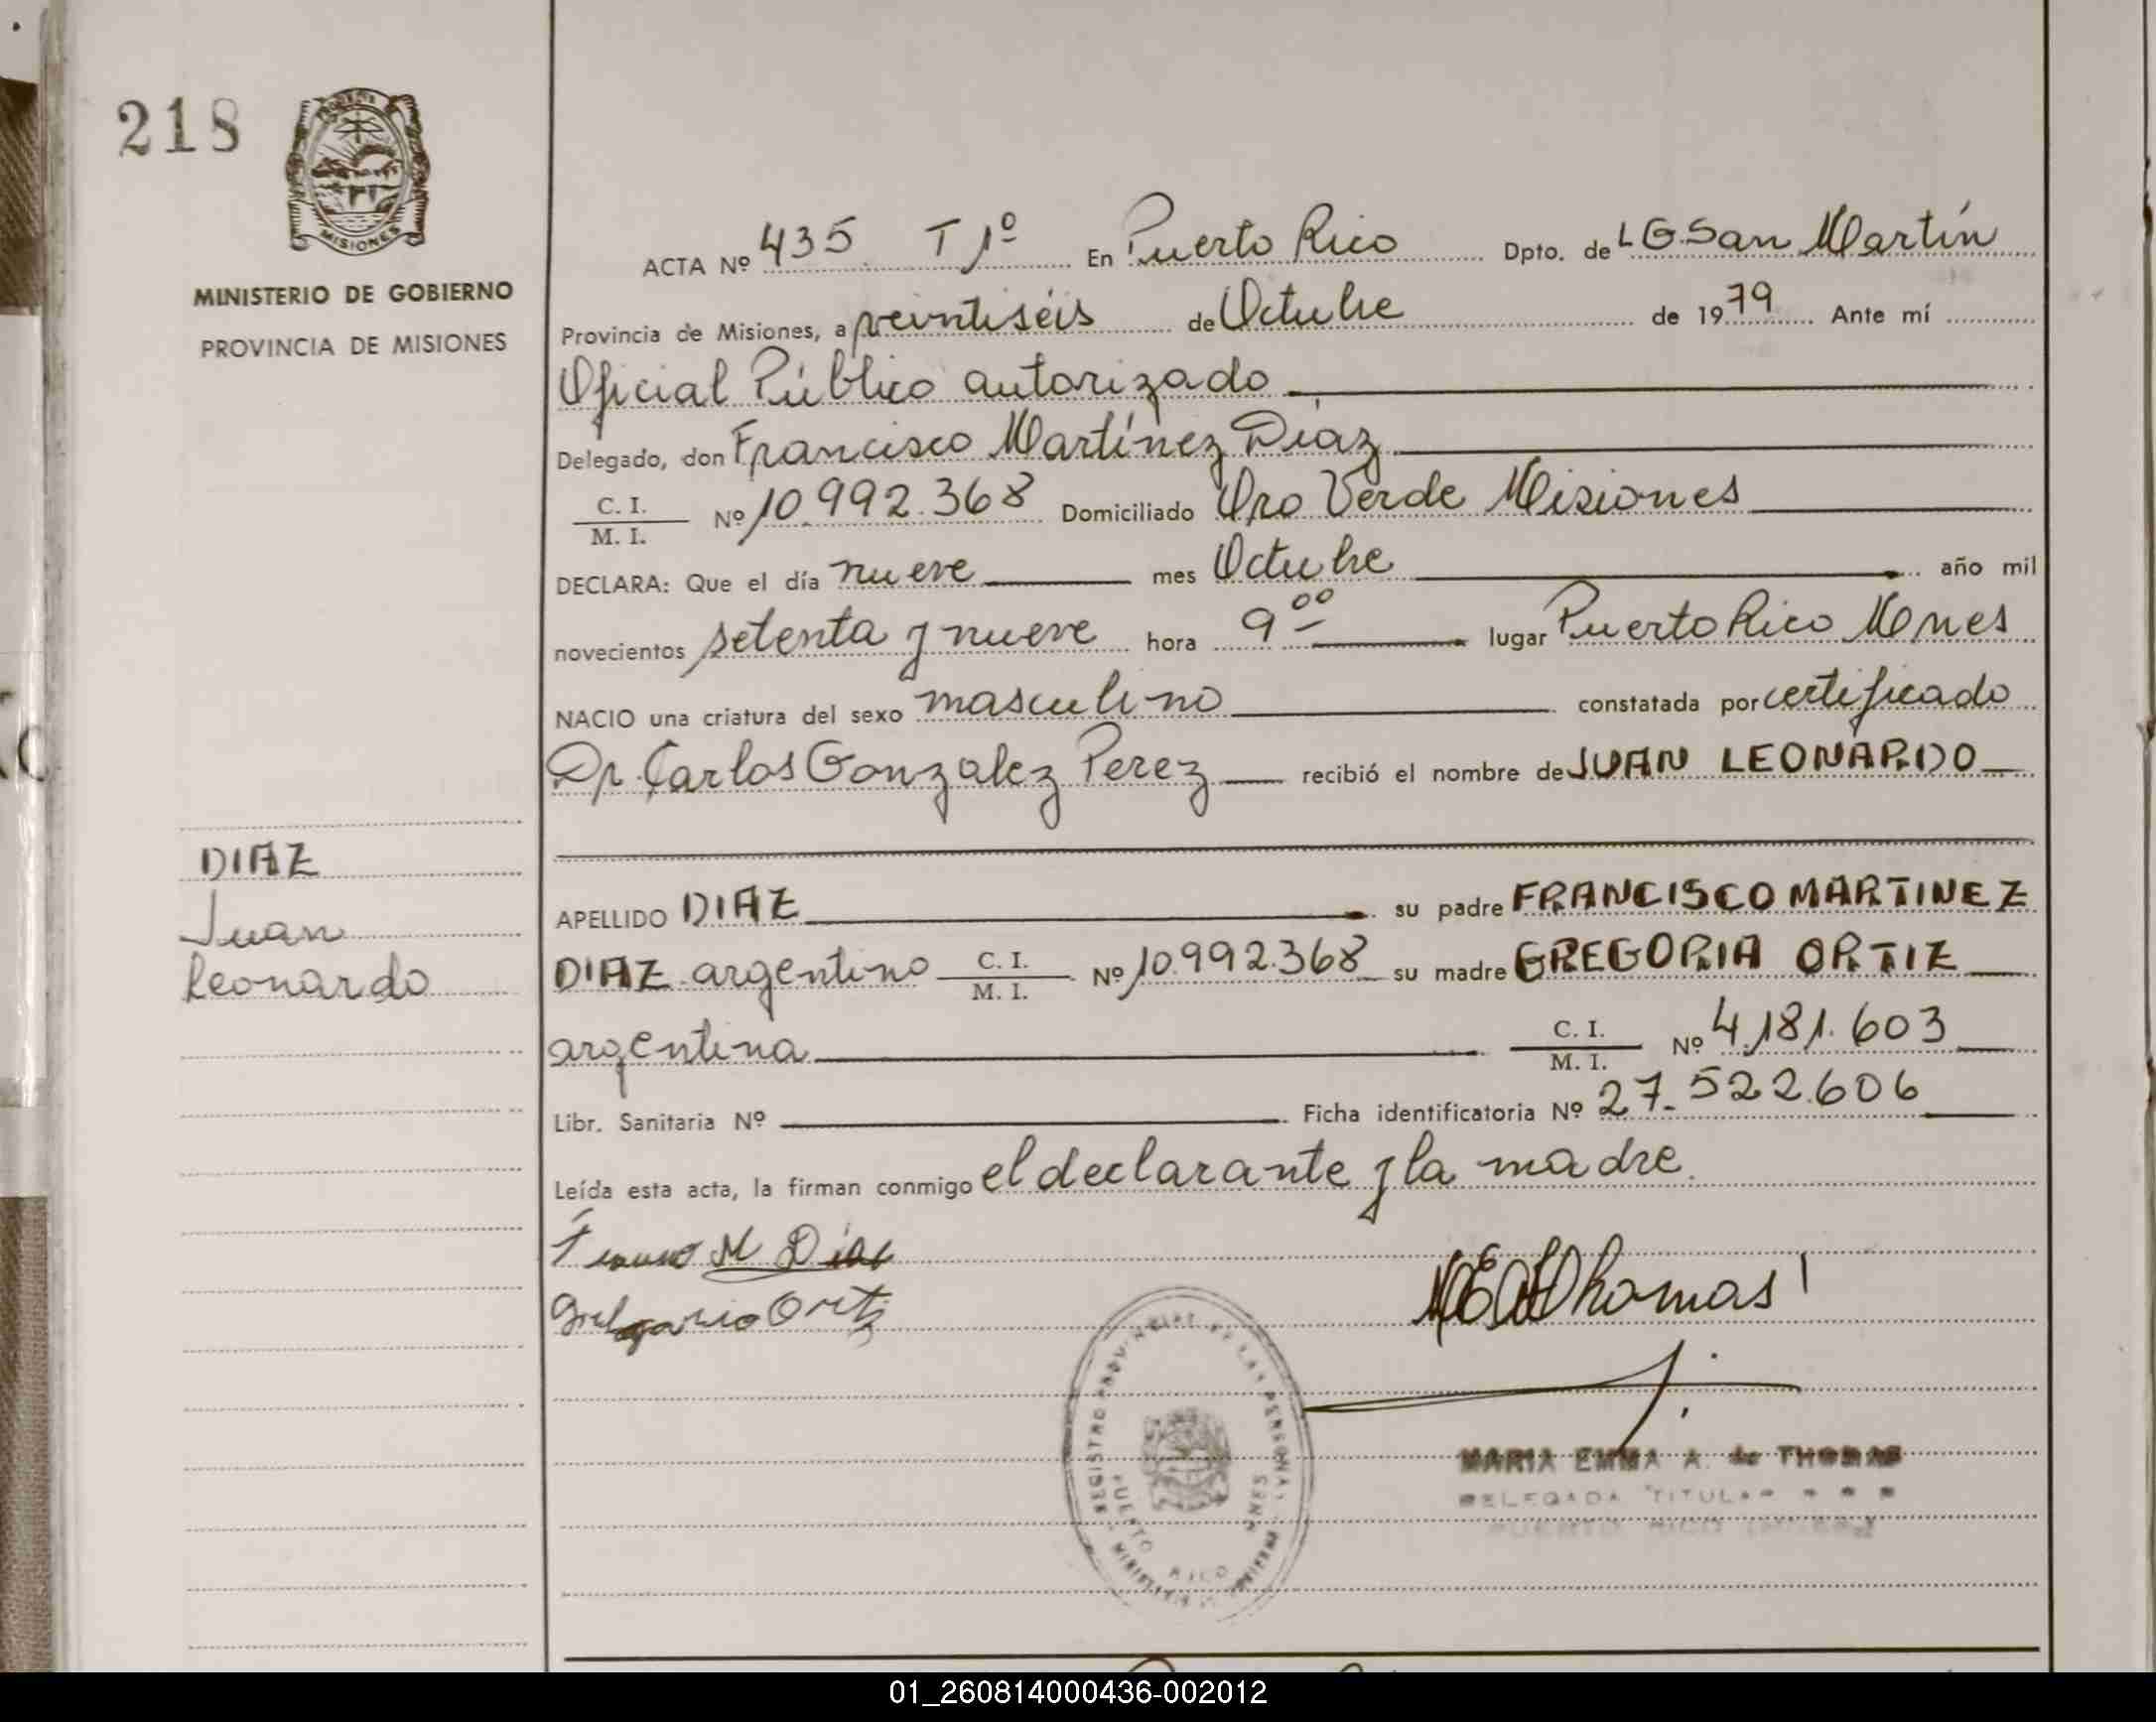 218
MISIONES
MINISTERIO DE GOBIERNO
PROVINCIA DE MISIONES
ACTA Nº 435 T 1º En Puerto Rico Dpto. de L G. San Martín
Provincia de Misiones, a veintiséis de Octubre de 1979 Ante mí
Oficial Público autorizado
Delegado, don Francisco Martínez Díaz
C. I.
M. I. Nº 10.992.368 Domiciliado Oro Verde Misiones
DECLARA: Que el día nueve mes Octubre año mil
novecientos setenta y nueve hora 9 00 lugar Puerto Rico Mnes
NACIO una criatura del sexo masculino constatada por certificado
Dr. Carlos Gonzalez Perez recibió el nombre de JUAN LEONARDO
DIAZ
Juan
Leonardo
APELLIDO DIAZ su padre FRANCISCO MARTINEZ
DIAZ argentino C. I. M. I. Nº 10.992.368 su madre GREGORIA ORTIZ
argentina C. I. M. I. Nº 4.181.603
Libr. Sanitaria Nº Ficha identificatoria Nº 27.522.606
Leída esta acta, la firman conmigo el declarante y la madre.
M Díaz
Ortiz
Thomas
REGISTRO PROVINCIAL DE LAS PERSONAS
PUERTO RICO MNES
MARIA EMMA A. de THOMAS
DELEGADA TITULAR
PUERTO RICO
01_260814000436-002012